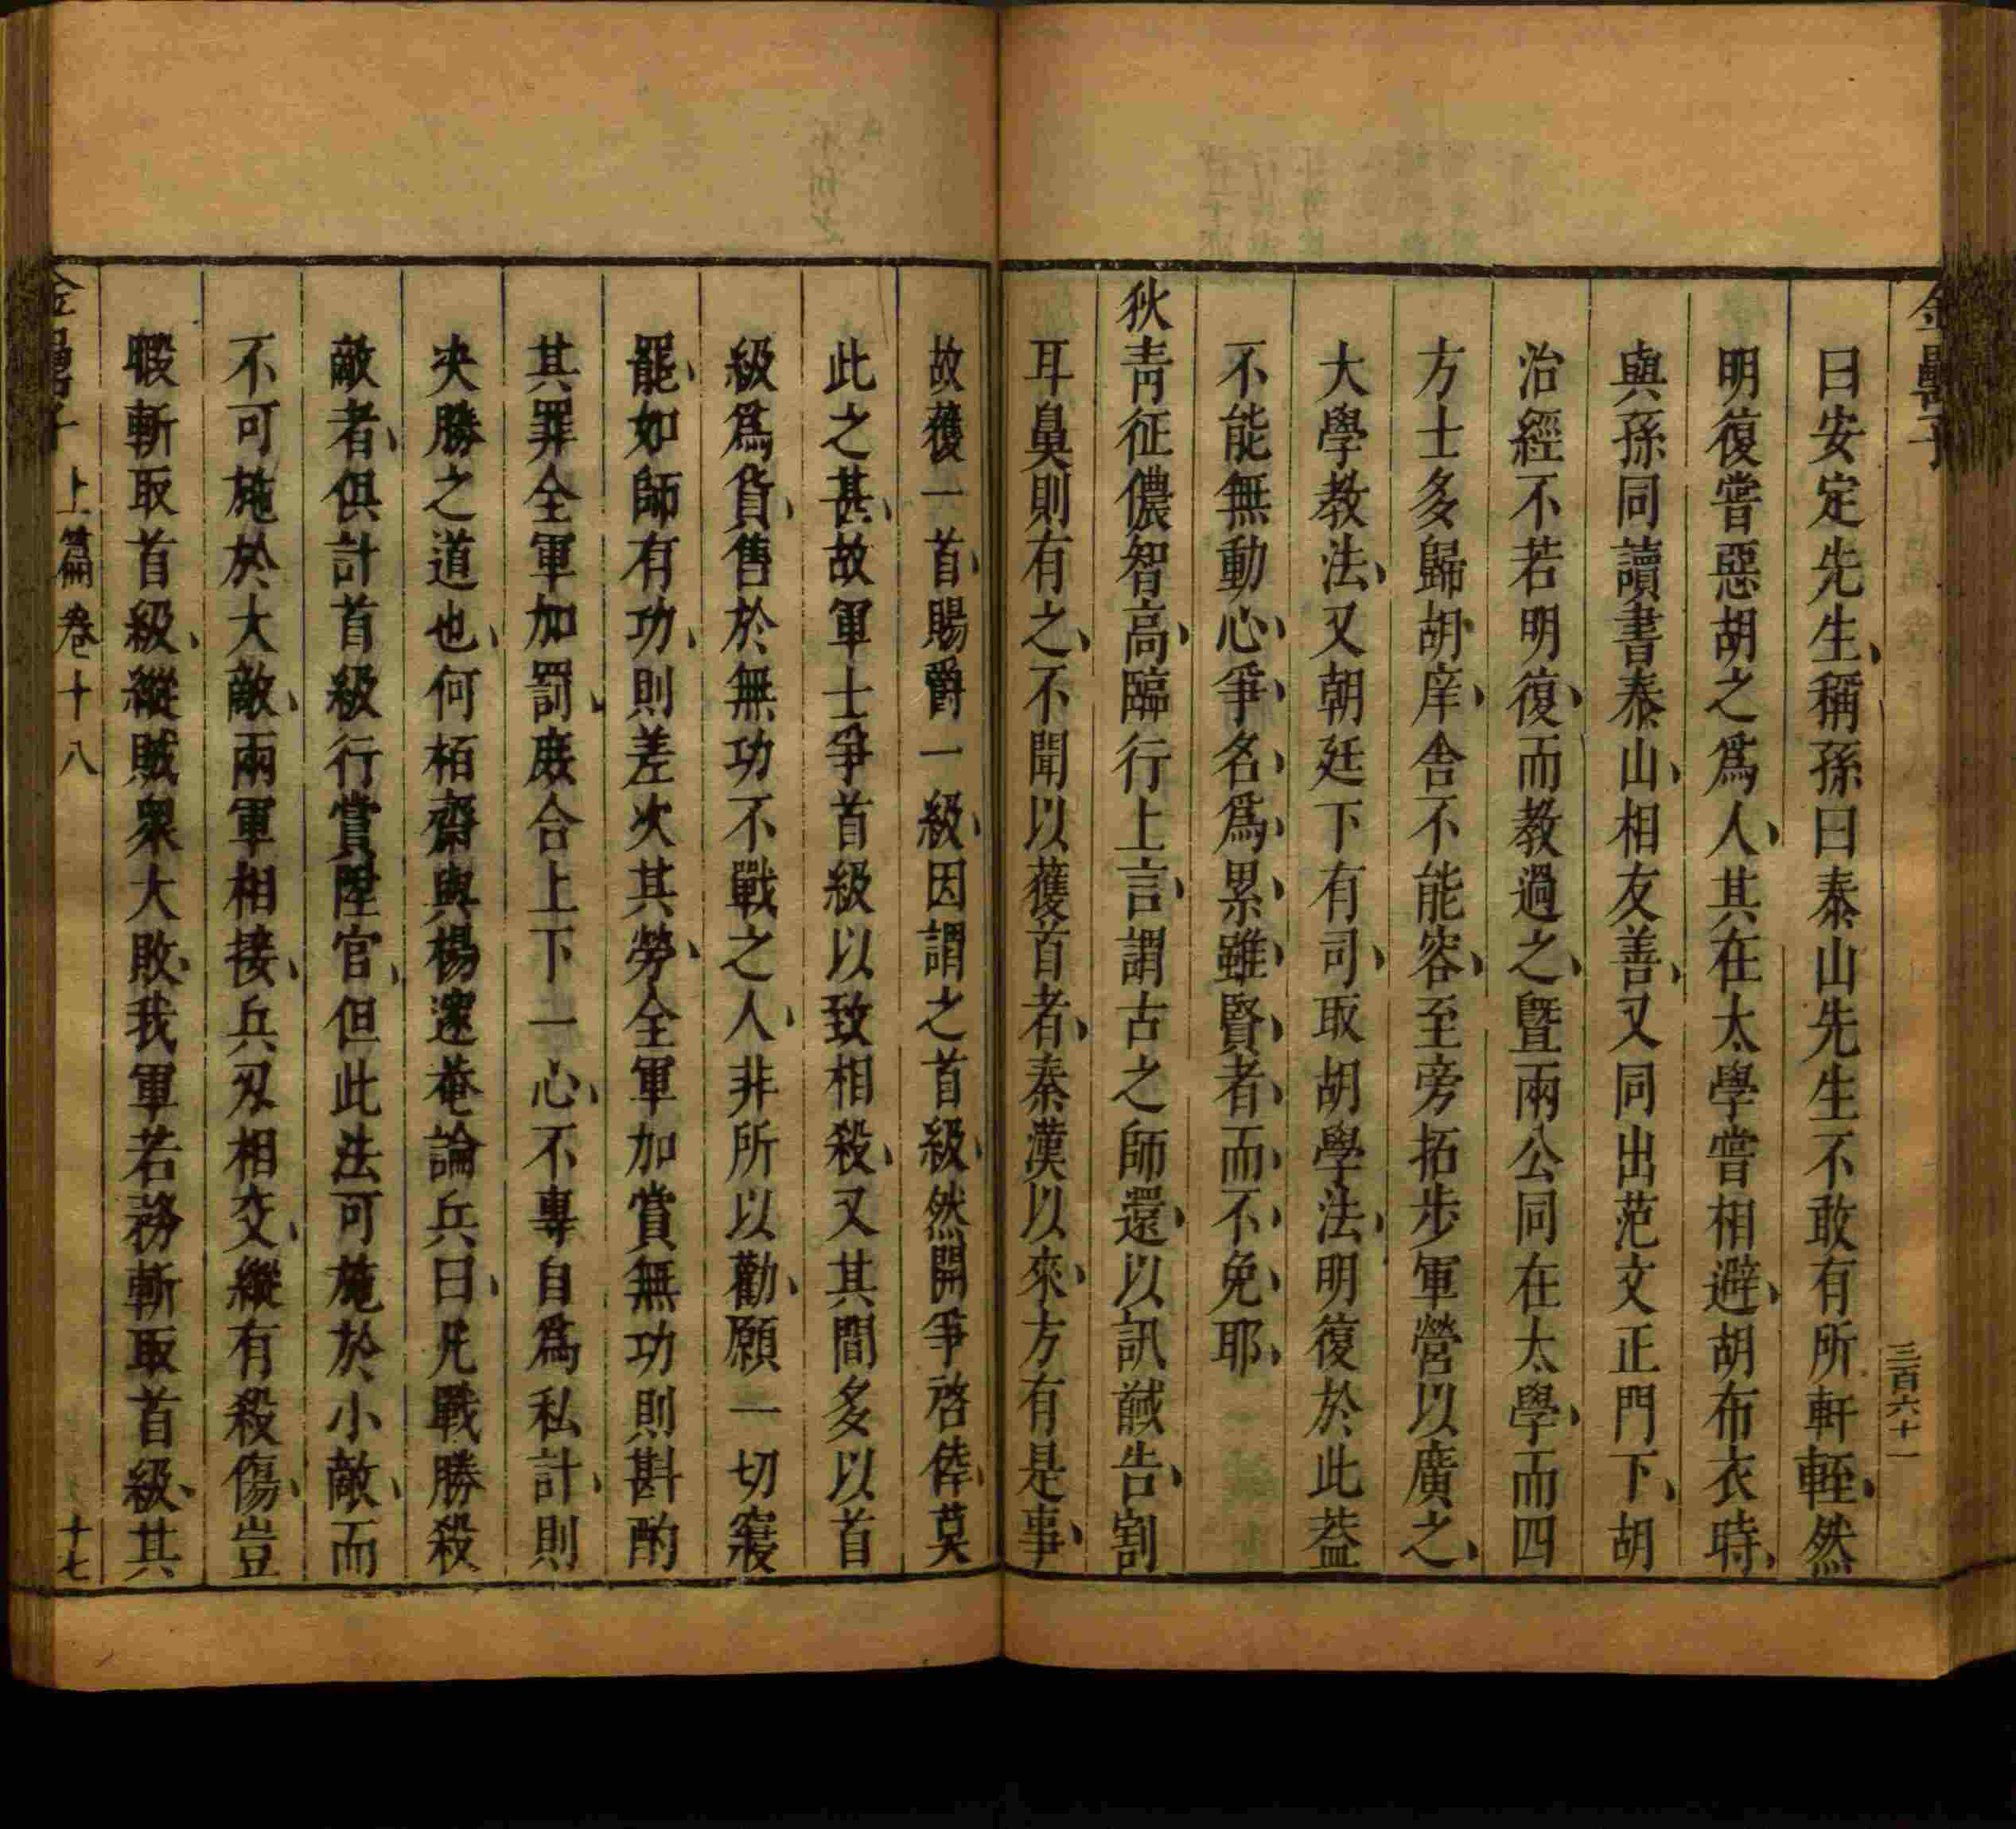 金罍子
三百六十一
曰安定先生稱孫曰泰山先生不敢有所軒輊然
明復嘗惡胡之爲人其在太學嘗相避胡布衣時
與孫同讀書泰山相友善又同出范文正門下胡
治經不若明復而教過之曁兩公同在太學而四
方士多歸胡庠舍不能容至旁拓步軍營以廣之
大學教法又朝廷下有司取胡學法明復於此葢
不能無動心爭名爲累雖賢者而不免耶
狄青征儂智高臨行上言謂古之師還以訊馘告割
耳鼻則有之不聞以獲首者秦漢以來方有是事
故獲一首賜爵一級因謂之首級然開爭啓倖莫
此之甚故軍士爭首級以致相殺又其間多以首
級爲貨售於無功不戰之人非所以勸願一切寢
罷如師有功則差次其勞全軍加賞無功則斟酌
其罪全軍加罰庶合上下一心不專自爲私計則
决勝之道也何栢齋與楊邃菴論兵曰凡戰勝殺
敵者俱計首級行賞陞官但此法可施於小敵而
不可施於大敵兩軍相接兵刄相交縱有殺傷豈
暇斬取首級縱賊衆大敗我軍若務斬取首級其
金罍子
上篇卷十八
十七